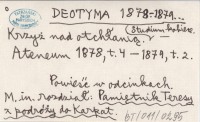 DEOTYMA 1878-1879...
Krzyż nad otchłanią. (Studium kobiece.)
Ateneum 1878, t. 4 — 1879, t. 2.
Powieść w odcinkach.
M. in. rozdział: Pamiętnik Teresy
z podróży do Karpat.